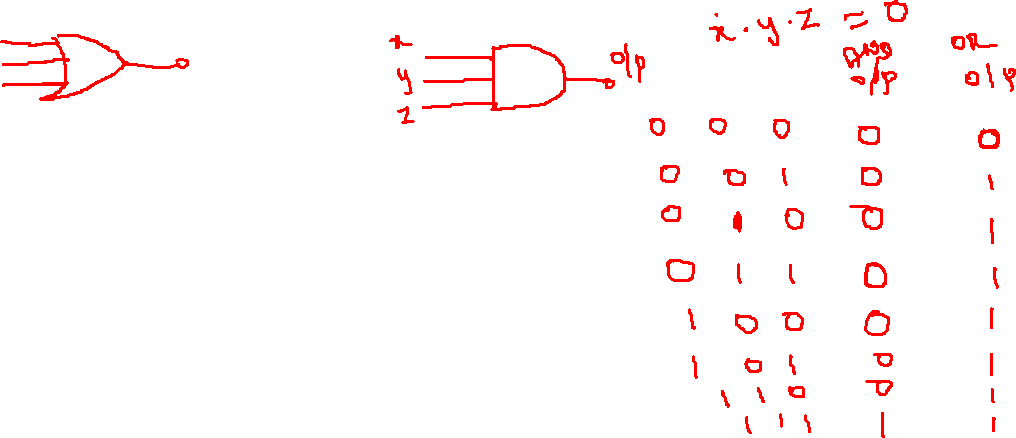 x . y . z = 0
AND OR
x o/p o/p o/p
y
z
0 0 0 0 0
0 0 1 0 1
0 1 0 0 1
0 1 1 0 1
1 0 0 0 1
1 0 1 0 1
1 1 0 0 1
1 1 1 1 1